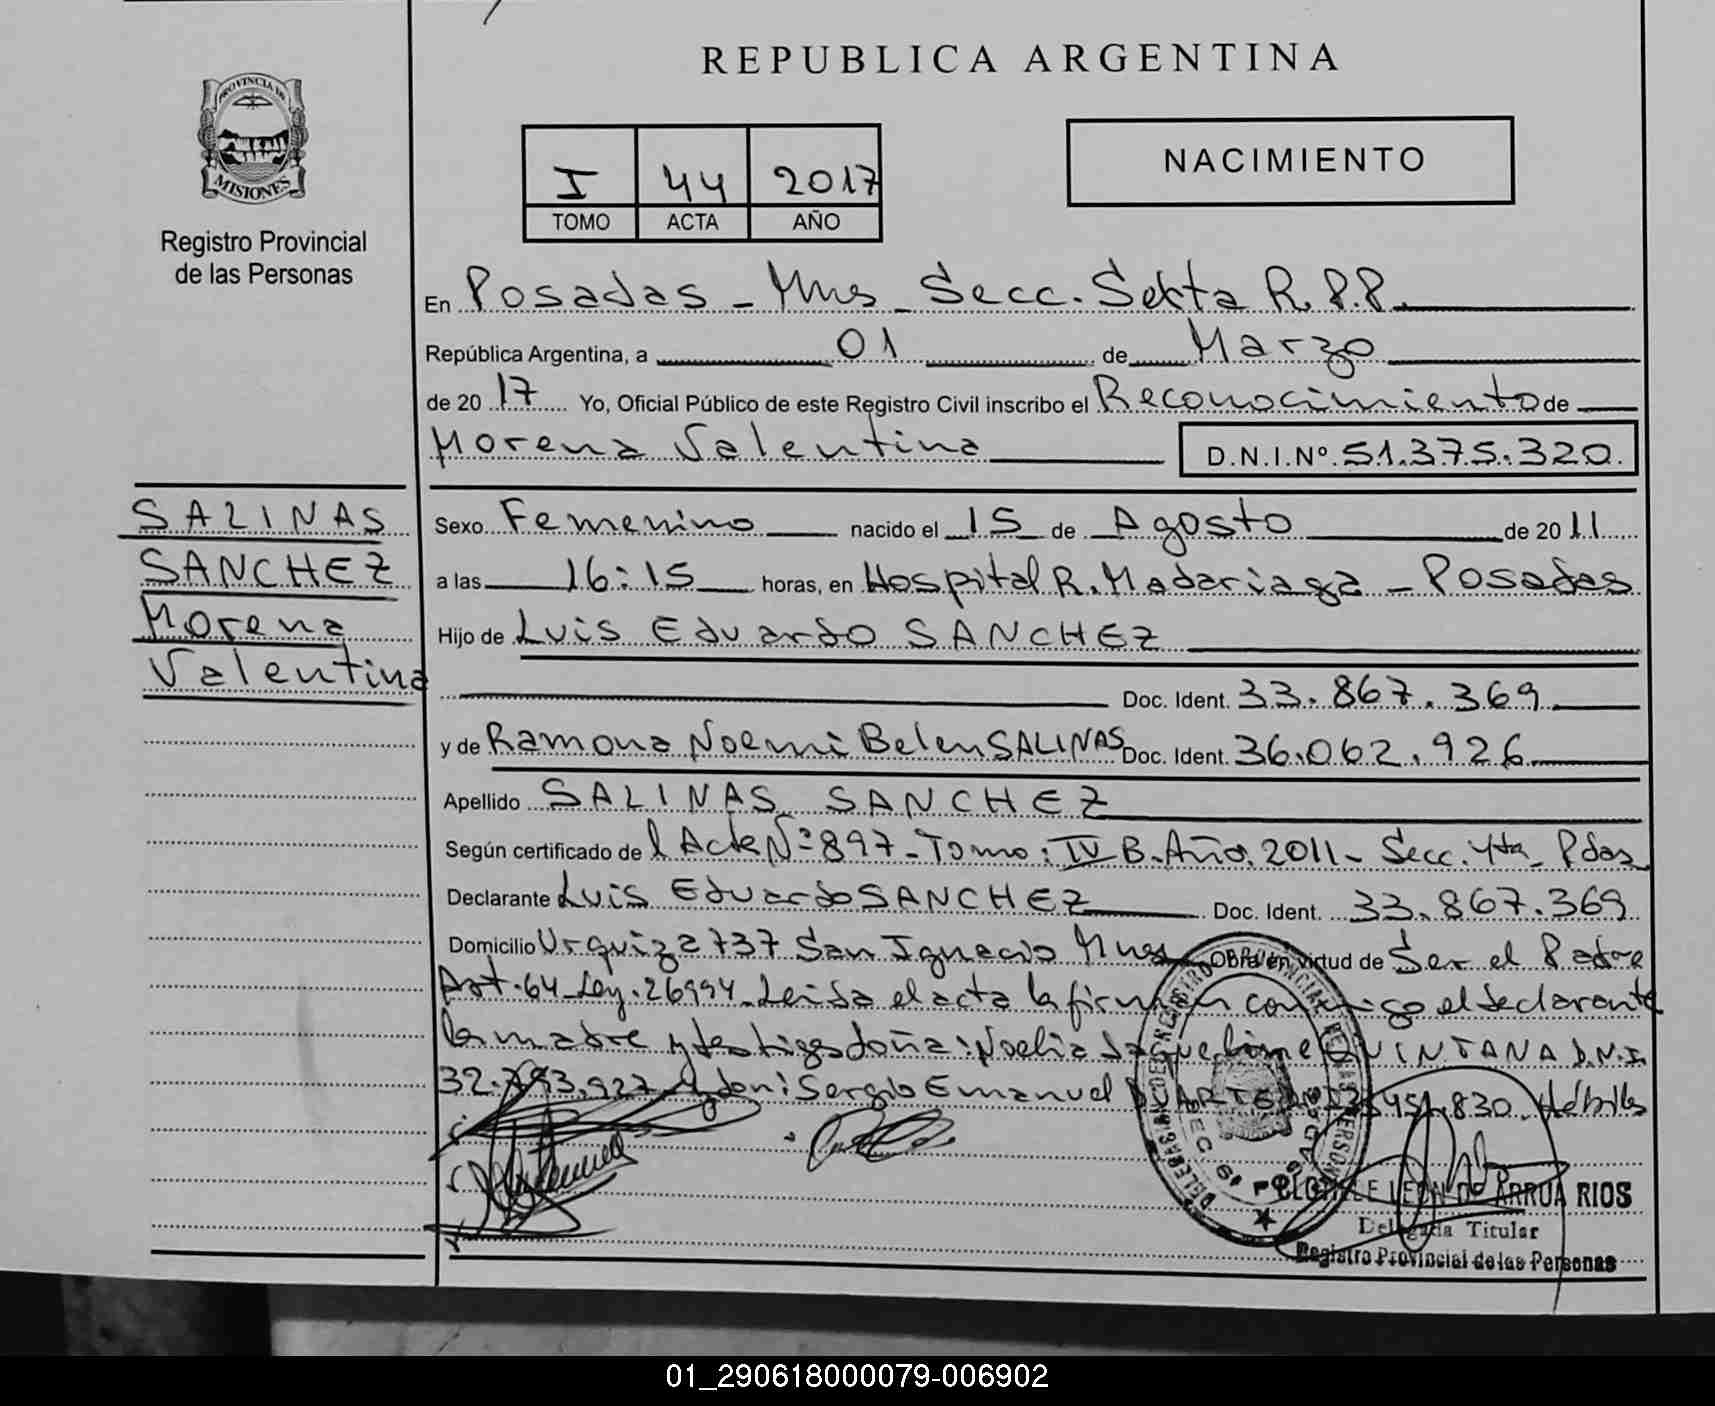 REPUBLICA ARGENTINA
PROVINCIA DE
MISIONES
Registro Provincial
de las Personas
I 44 2017
TOMO ACTA AÑO
NACIMIENTO
En Posadas - Mnes Secc. Sexta R.P.P.
República Argentina, a 01 de Marzo
de 20 17 Yo, Oficial Público de este Registro Civil inscribo el Reconocimiento de
Morena Valentina D.N.I.Nº 51.375.320
SALINAS
SANCHEZ
Morena
Valentina
Sexo Femenino nacido el 15 de Agosto de 20 11
a las 16:15 horas, en Hospital R. Madariaga - Posadas
Hijo de Luis Eduardo SANCHEZ
Doc. Ident. 33.867.369
y de Ramona Noemi Belen SALINAS Doc. Ident. 36.062.926
Apellido SALINAS SANCHEZ
Según certificado de l Acta Nº 897 - Tomo: IV B. Año. 2011 - Secc. 4ta - Pdas
Declarante Luis Eduardo SANCHEZ Doc. Ident. 33.867.369
Domicilio Urquiza 737 San Ignacio Mnes Obra en virtud de Ser el Padre
Art. 64 Ley. 26994. Leida el acta la firman conmigo el declarante
la madre y testigos doña: Noelia QUINTANA D.N.I.
32. 927 y don: Sergio Emanuel DUARTE 830. Hábiles
SEC 6º POSADAS
CLOTILDE LEON DE ARRUA RIOS
Delegada Titular
Registro Provincial de las Personas
01_290618000079-006902